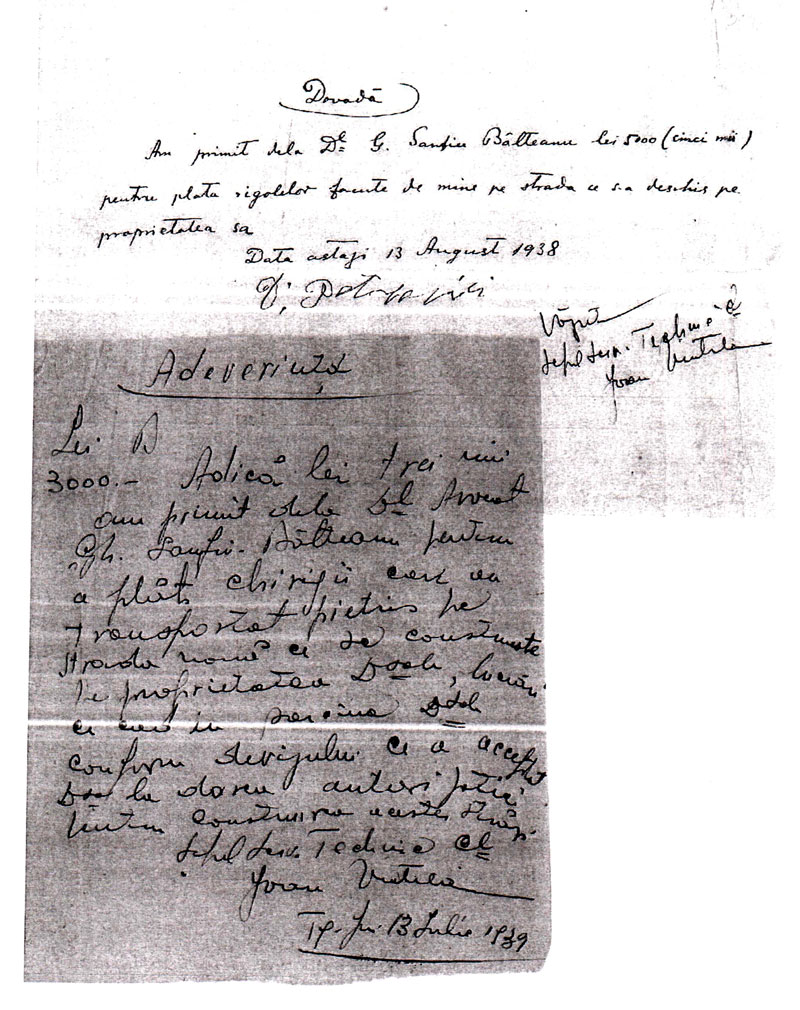 Dovadă
Am primit dela Dl G. Sanfiu Bâlteanu lei 5000 (cinci mii)
pentru plata rigolelor facute de mine pe strada ce s-a deschis pe
proprietatea sa
Data astazi 13 August 1938
Văzut
Șeful Serv. Technic
Ioan
Adeverință
Lei
3000.- Adică lei trei mii
am primit dela Dl Avocat
Gh. Sanfiu-Bâlteanu pentru
a plăti chirigii cari au
transportat pietriș pe
strada nouă ce se construește
pe proprietatea Dsale, lucrări
ce cad în sarcina Dsale
conform devizului ce a acceptat
Dsa la darea autorizației
pentru construirea acestei străzi.
Șeful Serv. Technic
Ioan
Tg. Jiu 13 Iulie 1939